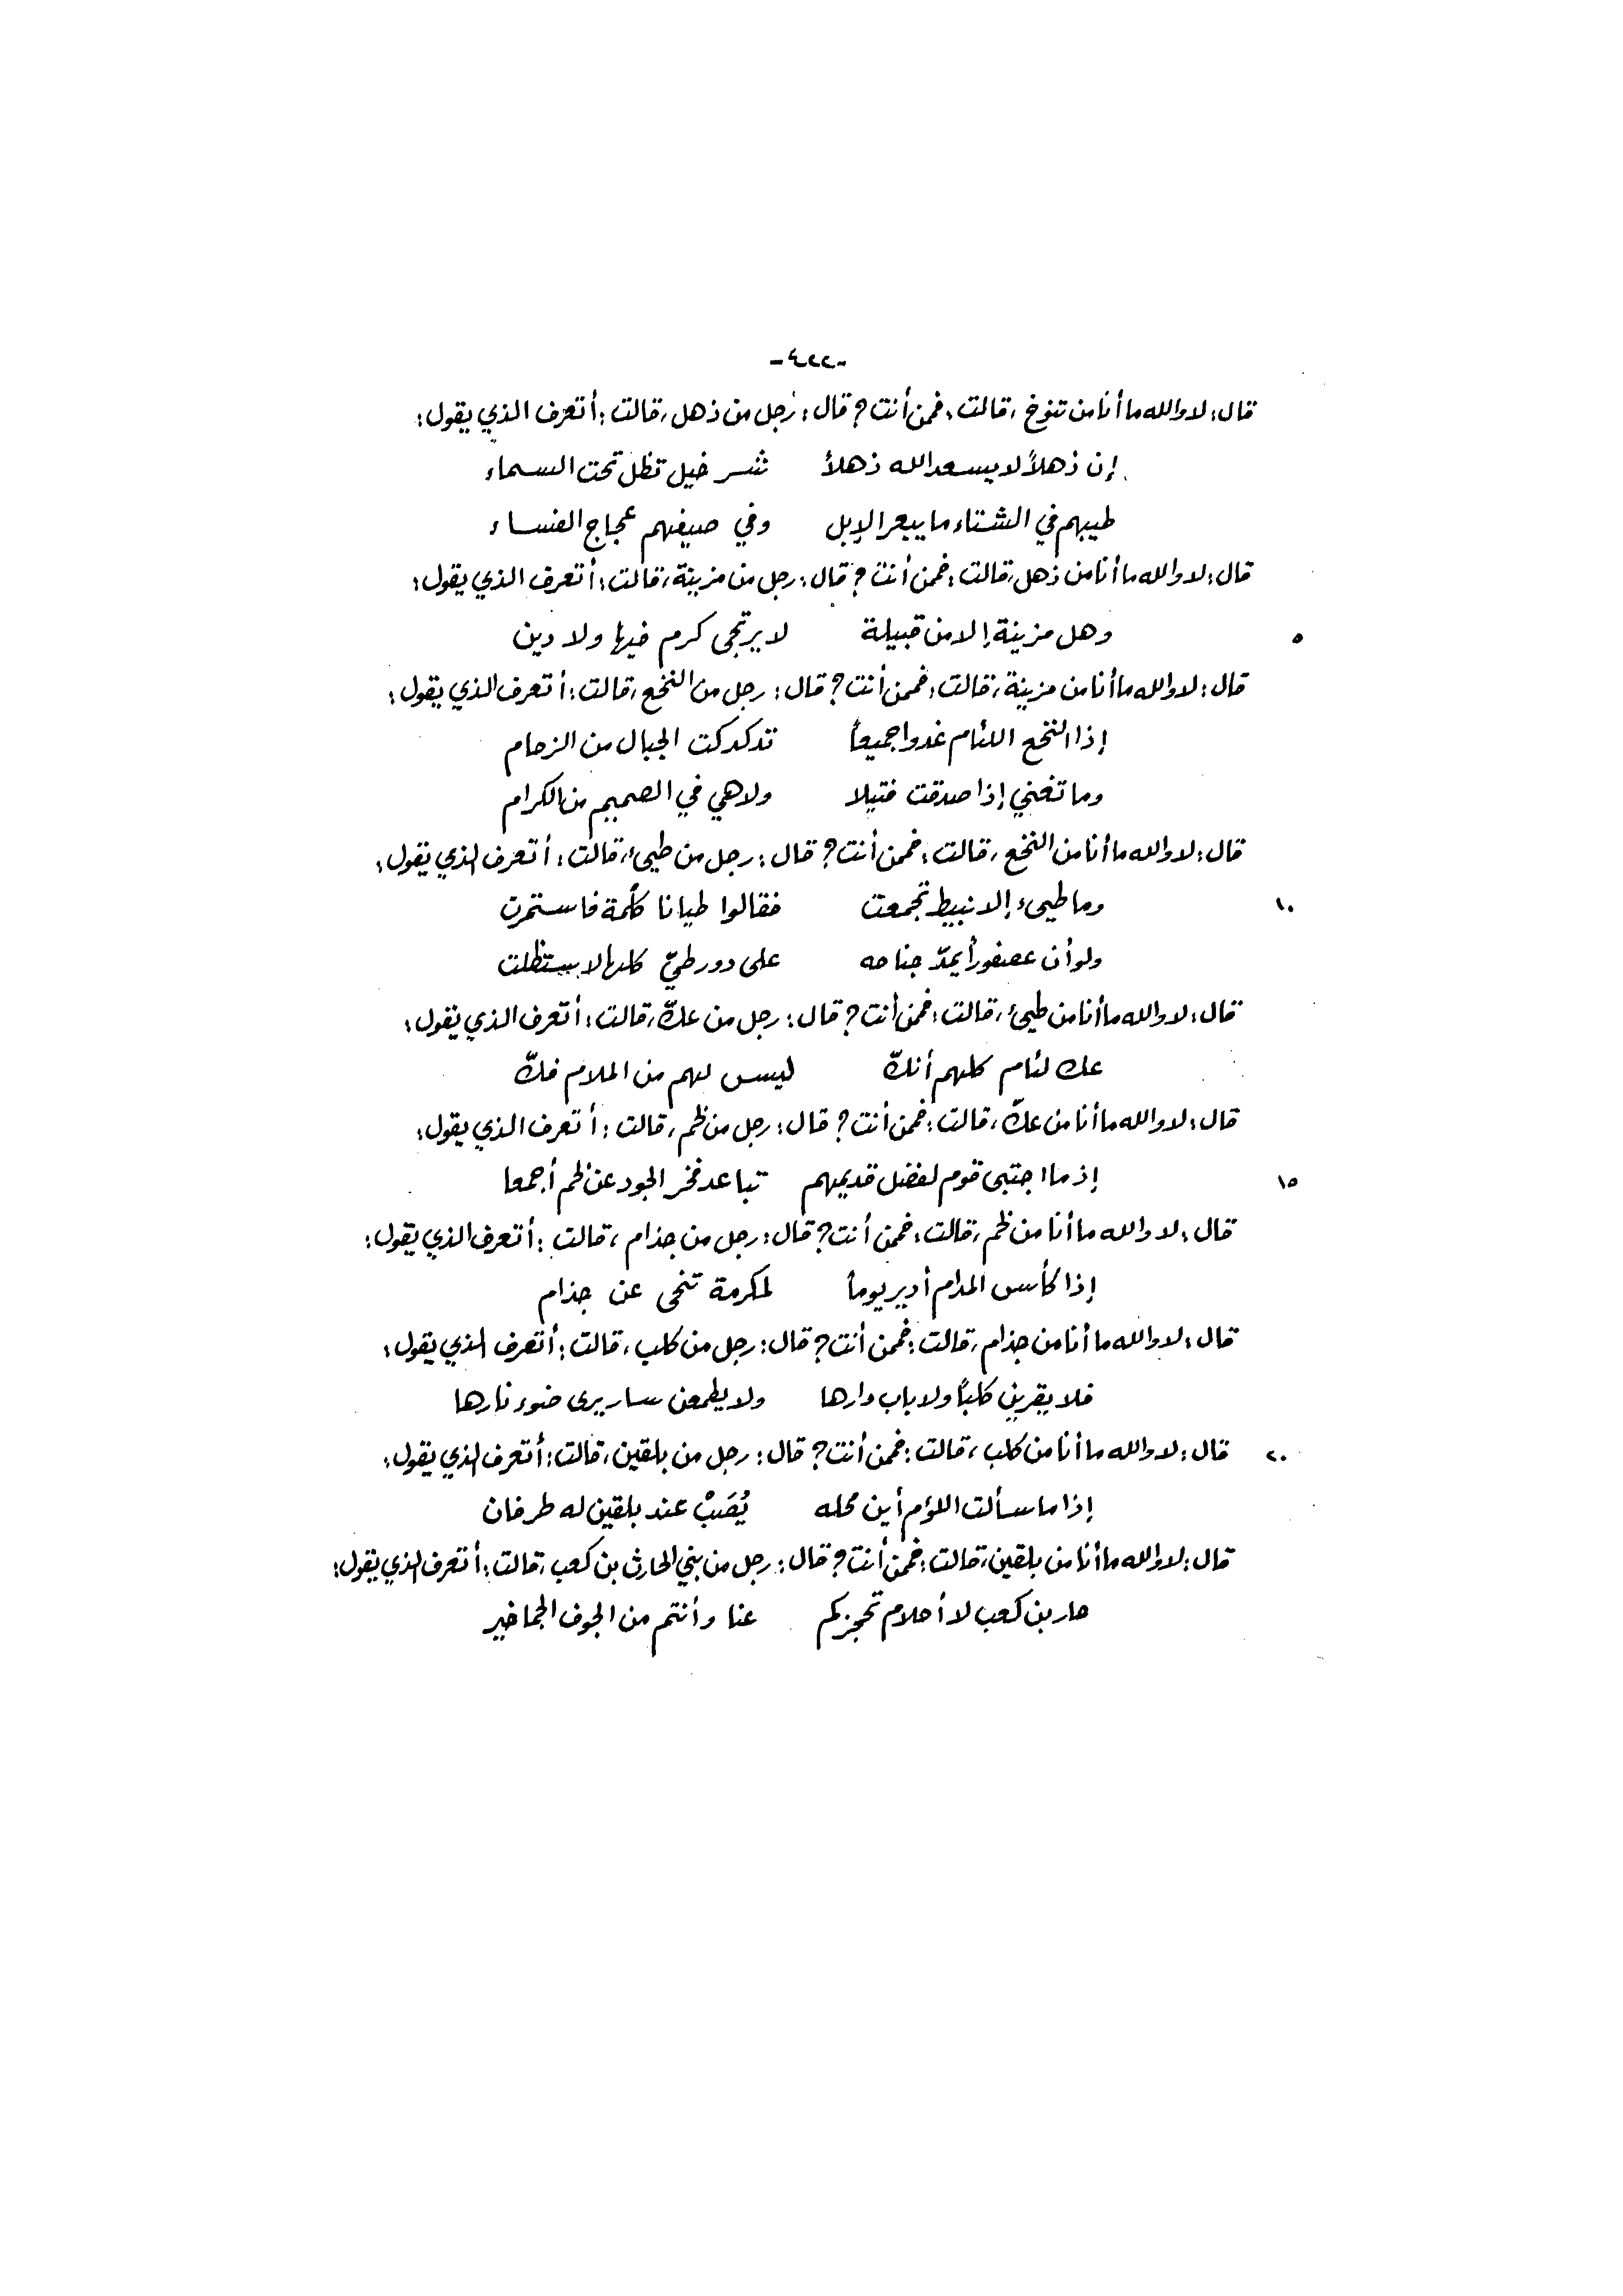 -٤٢٢-
قال: لا والله ما أنا من تنوخ، قالت: فممن أنت؟ قال: رجل من ذهل، قالت: أتعرف الذي يقول:
إن ذهلاً لا يسعد الله ذهلاً شر خيل تظل تحت السماء
طيبهم في الشتاء ما يبعر الإبل وفي صيفهم عجاج الفساء
قال: لا والله ما أنا من ذهل، قالت: فممن أنت؟ قال: رجل من مزينة، قالت: أتعرف الذي يقول:
٥ وهل مزينة إلا من قبيلة لا يرتجى كرم فيها ولا دين
قال: لا والله ما أنا من مزينة، قالت: فممن أنت؟ قال: رجل من النخع، قالت: أتعرف الذي يقول:
إذا النخع اللئام غدوا جميعاً تدكدكت الجبال من الزحام
وما تغني إذا صدقت فتيلا ولا هي في الصميم من الكرام
قال: لا والله ما أنا من النخع، قالت: فممن أنت؟ قال: رجل من طيىء، قالت: أتعرف الذي يقول:
١٠ وما طيىء إلا نبيط تجمعت فقالوا طيانا كلمة فاستمرت
ولو أن عصفوراً يمدّ جناحه على دور طيّ كلها لاستظلت
قال: لا والله ما أنا من طيىء، قالت: فمن أنت؟ قال: رجل من عكّ، قالت: أتعرف الذي يقول:
عك لئام كلهم أنكّ ليس لهم من الملام فكّ
قال: لا والله ما أنا من عكّ، قالت: فممن أنت؟ قال: رجل من لخم، قالت: أتعرف الذي يقول:
١٥ إذ ما اجتبى قوم لفضل قديمهم تباعد فخر الجود عن لخم أجمعا
قال: لا والله ما أنا من لخم، قالت: فممن أنت؟ قال: رجل من جذام، قالت: أتعرف الذي يقول:
إذا كأس المدام أدير يوماً لمكرمة تنحى عن جذام
قال: لا والله ما أنا من جذام، قالت: فممن أنت؟ قال: رجل من كلب، قالت: أتعرف الذي يقول:
فلا يقربن كلباً ولا باب دارها ولا يطمعن سار يرى ضوء نارها
٢٠ قال: لا والله ما أنا من كلب، قالت: فممن أنت؟ قال: رجل من بلقين، قالت: أتعرف الذي يقول:
إذا ما سألت اللؤم أين محله يُصَبْ عند بلقين له طرفان
قال: لا والله ما أنا من بلقين، قالت: فممن أنت؟ قال: رجل من بني الحارث بن كعب، قالت: أتعرف الذي يقول:
حار بن كعب لا أحلام تحجزكم عنا وأنتم من الجوف الجماخير